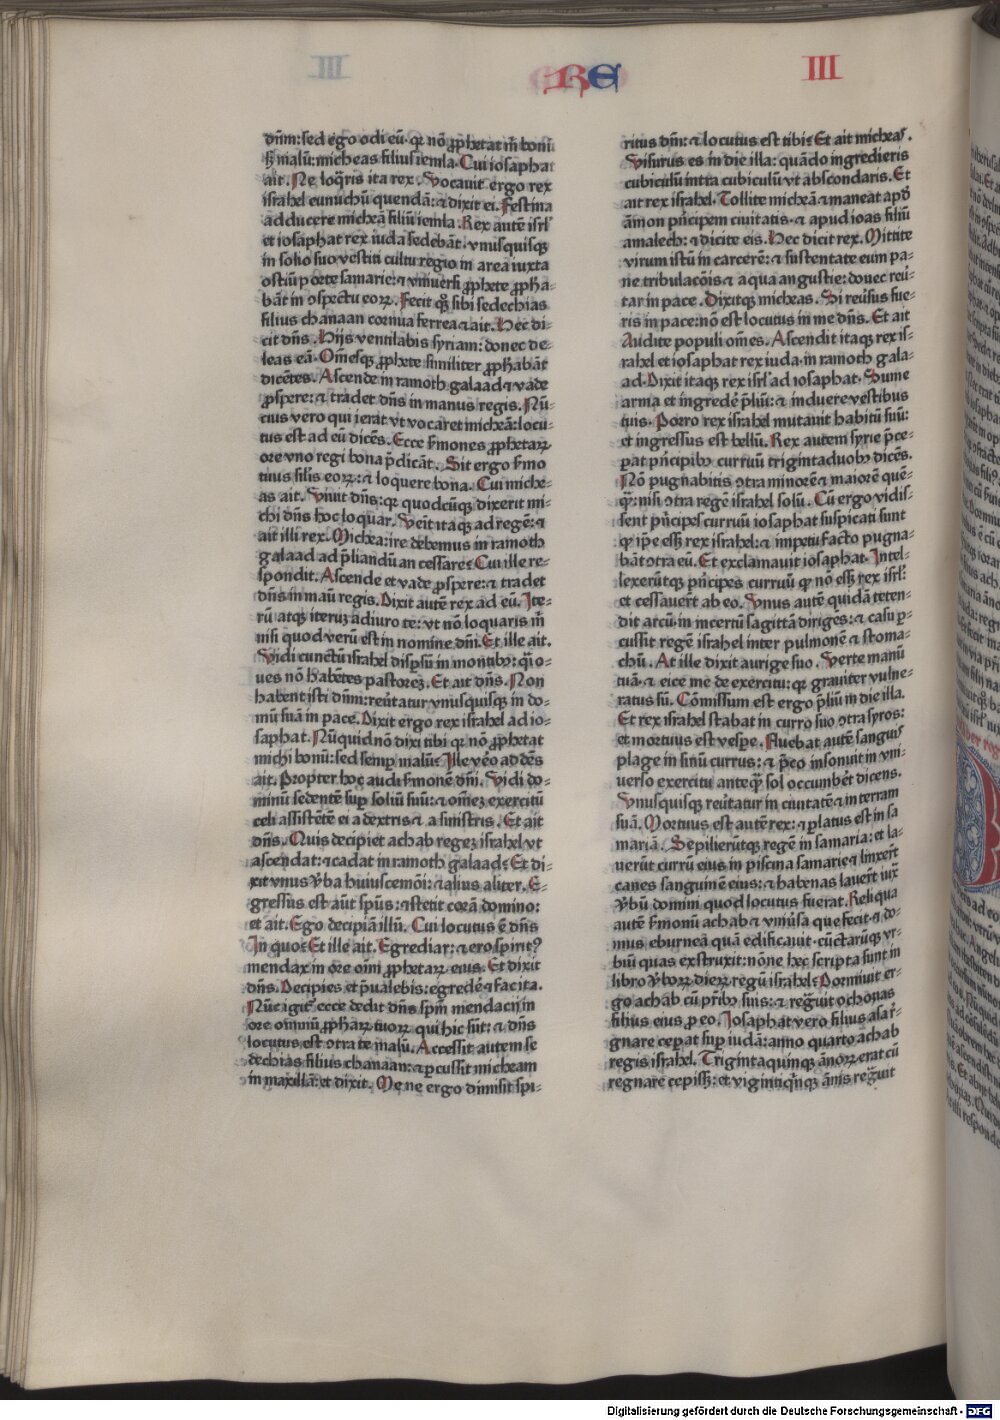 RE
III
dñm: sed ego odi eū· qꝛ nō ꝓphetat m̄ bonū
sꝫ malū: micheas filius iemla. Cui iosaphat
ait. Ne loq̄ris ita rex. Vocauit ergo rex
israhel eunuchū quendā: ⁊ dixit ei. Festina
adducere micheā filiū iemla. Rex autē isrl̄
et iosaphat rex iuda sedebāt· vnusquisqꝫ
in solio suo vestiti cultu regio in area iuxta
ostiū porte samarie: ⁊ vniuersi ꝓphete ꝓphā-
bāt in ↄspectu eoꝝ. Fecit qꝫ sibi sedechias
filius chanaan cornua ferrea ⁊ ait. Hec di-
cit dñs. Hijs ventilabis syriam: donec de-
leas eā. Om̄esqꝫ ꝓphete similiter ꝓphābāt
dicētes. Ascende in ramoth galaad ⁊ vade
ꝓspere: ⁊ tradet dñs in manus regis. Nū-
cius vero qui ierat vt vocaret micheā: locu-
tus est ad eū dicēs. Ecce s̄mones ꝓphetaꝝ
ore vno regi bona p̄dicāt. Sit ergo s̄mo
tuus sil̄is eoꝝ: ⁊ loquere bona. Cui miche-
as ait. Viuit dñs: qꝛ quodcūqꝫ dixerit mi-
chi dñs hoc loquar. Venit itaqꝫ ad regē: ⁊
ait illi rex. Michea: ire debemus in ramoth
galaad ad p̄liandū an cessare? Cui ille re-
spondit. Ascende et vade ꝓspere: ⁊ tradet
dñs in manū regis. Dixit autē rex ad eū. Ite-
rū atqꝫ iterꝫ adiuro te: vt nō loquaris m̄
nisi quod verū est in nomine dñi. Et ille ait.
Vidi cunctū israhel disꝑsū in montibꝫ: q̄si o-
ues nō habētes pastorē. Et ait dñs. Non
habent isti dñm: reūtatur vnusquisqꝫ in do-
mū suā in pace. Dixit ergo rex israhel ad io-
saphat. Nūquid nō dixi tibi qꝛ nō ꝓphetat
michi bonū: sed semꝑ malū? Ille v̄o addēs
ait. Propter hoc audi s̄monē dñi. Vidi do-
minū sedentē suꝑ soliū suū: ⁊ om̄ez exercitū
celi assistētē ei a dextris ⁊ a sinistris. Et ait
dñs. Quis decipiet achab regez israhel vt
ascendat: ⁊ cadat in ramoth galaad? Et di-
xit vnus v̄ba huiuscemōi: ⁊ alius aliter. E-
gressus est aūt spūs: ⁊ stetit corā domino:
et ait. Ego decipiā illū. Cui locutus ē dñs
In quo? Et ille ait. Egrediar: ⁊ ero spirit9
mendax in ore oīm ꝓphetaꝝ eius. Et dixit
dñs. Decipies et p̄ualebis: egredē ⁊ fac ita.
Nūc igit᷑ ecce dedit dñs spm̄ mendacij in
ore omniū ꝓphaꝝ tuoꝝ qui hic sūt: ⁊ dñs
locutus est ↄtra te malū. Accessit autem se
dechias filius chanaan: ⁊ ꝑcussit micheam
in maxillā: et dixit. Me ne ergo dimisit spi-
ritus dñi: ⁊ locutus est tibi? Et ait micheas.
Visurus es in die illa: quādo ingredieris
cubiculū intra cubiculū vt abscondaris. Et
ait rex israhel. Tollite micheā ⁊ maneat apd̄
āmon pn̄cipem ciuitatis· ⁊ apud ioas filiū
amalech: ⁊ dicite eis. Hec dicit rex. Mittite
virum istū in carcerē: ⁊ sustentate eum pa-
ne tribulacōis ⁊ aqua angustie: donec reū-
tar in pace. Dixitqꝫ micheas. Si reūsus fue-
ris in pace: nō est locutus in me dñs. Et ait
Audite populi om̄es. Ascendit itaqꝫ rex is-
rahel et iosaphat rex iuda· in ramoth gala-
ad. Dixit itaqꝫ rex isrl̄ ad iosaphat. Sume
arma et ingredē p̄liū: ⁊ induere vestibus
tuis. Porro rex israhel mutauit habitū suū:
et ingressus est bellū. Rex autem syrie p̄ce-
ꝑat pn̄cipibꝫ curruū trigintaduobꝫ dicēs.
Nō pugnabitis ↄtra minorē ⁊ maiorē quē-
q̄: nisi ↄtra regē israhel solū. Cū ergo vidis-
sent pn̄cipes curruū iosaphat suspicati sunt
ꝙ ip̄e eēt rex israhel: ⁊ impetu facto pugna-
bāt ↄtra eū. Et exclamauit iosaphat. Intel-
lexerūtqꝫ pn̄cipes curruū ꝙ nō eēt rex isrl̄:
et cessauer̄t ab eo. Vnus autē quidā teten-
dit arcū: in incertū sagittā dirigēs: ⁊ casu ꝑ-
cussit regē israhel inter pulmonē ⁊ stoma-
chū. At ille dixit aurige suo. Verte manū
tuā· ⁊ eice me de exercitu: qꝛ grauiter vulne-
ratus sū. Cōmissum est ergo p̄liū in die illa.
Et rex israhel stabat in curro suo ↄtra syros:
et mortuus est vesꝑe. Fluebat autē sanguis
plage in sinū currus: ⁊ p̄co insonuit in vni-
uerso exercitu anteq̄ sol occumbēt dicens.
Vnusquisqꝫ reūtatur in ciuitatē ⁊ in terram
suā. Mortuus est autē rex: ⁊ ꝑlatus est in sa
mariā. Sepilierūtqꝫ regē in samaria: et la-
uerūt currū eius in piscina samarie ⁊ linxer̄t
canes sanguinē eius: ⁊ habenas lauer̄t iux
v̄bū domini quod locutus fuerat. Reliqua
autē s̄monū achab ⁊ vniūsa que fecit· ⁊ do-
mus eburneā quā edificauit· cūctarūqꝫ vr-
biū quas exstruxit: nōne hec scripta sunt in
libro v̄boꝝ dieꝝ regū israhel? Dormiuit er-
go achab cū pr̄ibꝫ suis: ⁊ regn̄uit ochosias
filius eius ꝓ eo. Iosaphat vero filius asa r̄-
gnare ceꝑat suꝑ iudā: anno quarto achab
regis israhel. Trigintaquinqꝫ ānoꝝ erat cū
regnare cepissꝫ: et vigintiqn̄qꝫ ānis regn̄uit
Digitalisierung gefördert durch die Deutsche Forschungsgemeinschaft - DFG